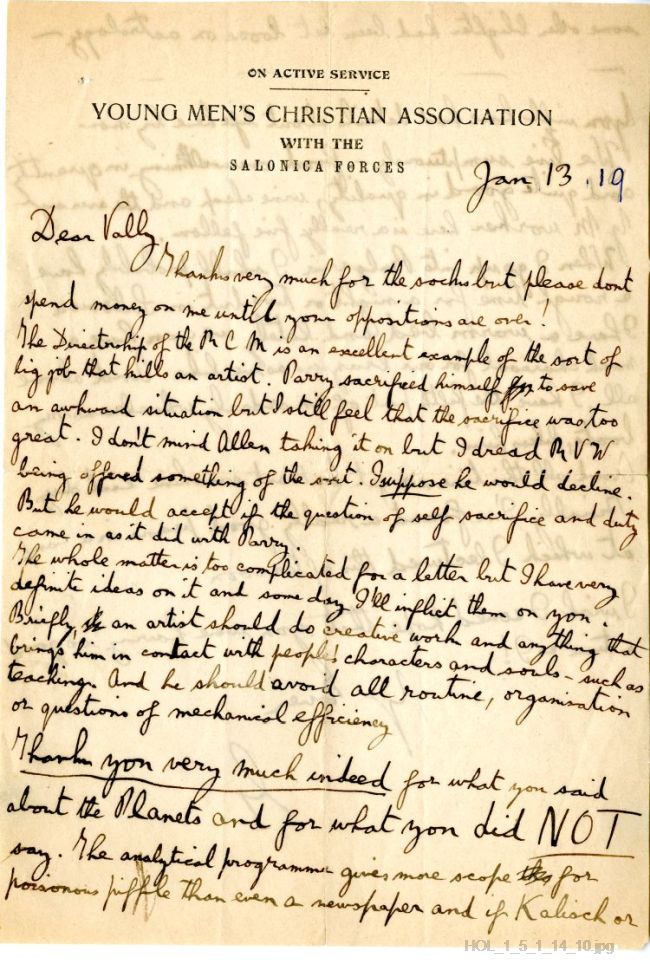 ON ACTIVE SERVICE
YOUNG MEN'S CHRISTIAN ASSOCIATION
WITH THE
SALONICA FORCES
Jan 13.19
Dear Vally
Thanks very much for the socks but please dont
spend money on me until your oppositions are over!
The Directorship of the R C M is an excellent example of the sort of
big job that kills an artist. Parry sacrificed himself to save
an awkward situation but I still feel that the sacrifice was too
great. I don't mind Allen taking it on but I dread R V W
being offered something of the sort. I suppose he would decline.
But he would accept if the question of self sacrifice and duty
came in as it did with Parry.
The whole matter is too complicated for a letter but I have very
definite ideas on it and some day I'll inflict them on you.
Briefly, an artist should do creative work and anything that
brings him in contact with peoples' characters and souls - such as
teaching. And he should avoid all routine, organisation
or questions of mechanical efficiency
Thank you very much indeed for what you said
about the Planets and for what you did NOT
say. The analytical programme gives more scope for
poisonous piffle than even a newspaper and if Kalisch or
HOL_1_5_1_14_10.jpg